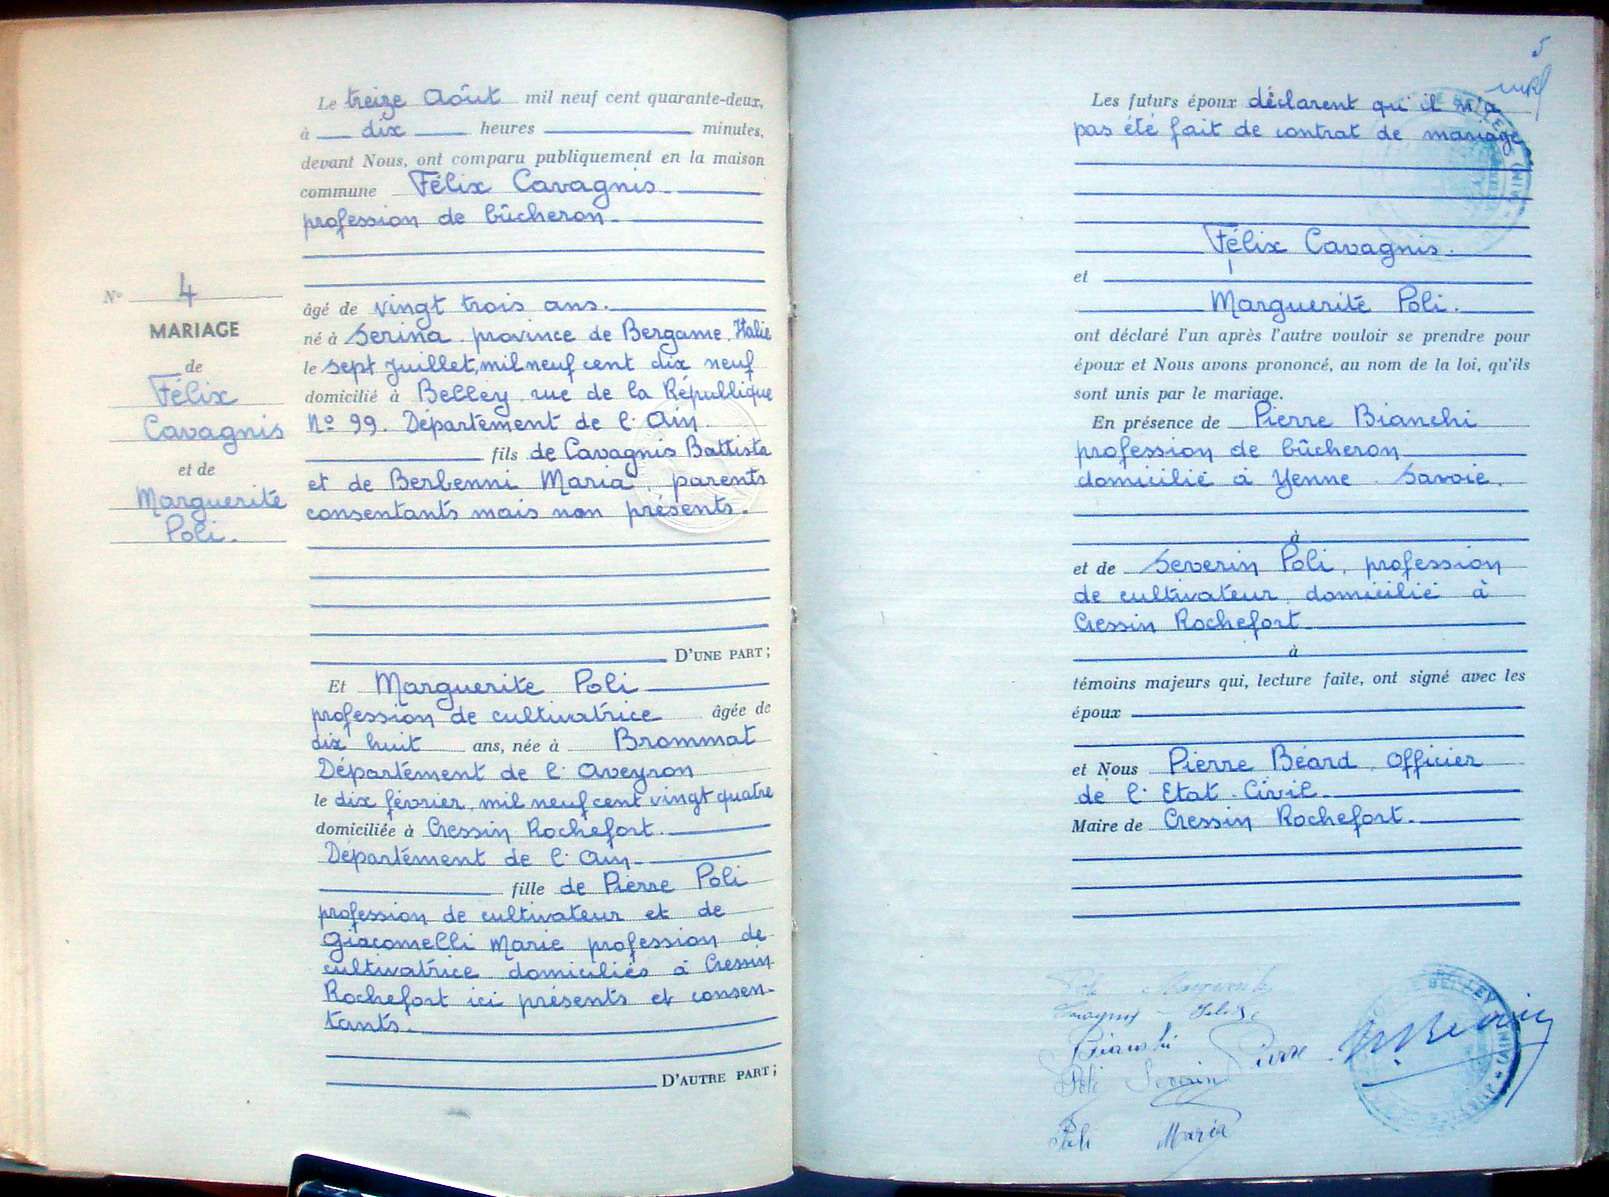 Le treize Août mil neuf cent quarante-deux,
à dix heures minutes,
devant Nous, ont comparu publiquement en la maison
commune Félix Cavagnis
profession de bûcheron
âgé de vingt trois ans.
né à Serina province de Bergame, Italie
le sept Juillet, mil neuf cent dix neuf
domicilié à Belley rue de la République
Nº 99. Département de l'Ain
fils de Cavagnis Battista
et de Berbenni Maria, parents
consentants mais non présents.
D'UNE PART;
Et Marguerite Poli
profession de cultivatrice âgée de
dix huit ans, née à Brommat
Département de l'Aveyron
le dix février, mil neuf cent vingt quatre
domiciliée à Cressin Rochefort.
Département de l'Ain
fille de Pierre Poli
profession de cultivateur et de
Giacomelli Marie profession de
cultivatrice domiciliés à Cressin
Rochefort ici présents et consen-
tants.
D'AUTRE PART;
Nº 4
MARIAGE
de
Félix
Cavagnis
et de
Marguerite
Poli.
5
Les futurs époux déclarent qu'il n'a
pas été fait de contrat de mariage
Félix Cavagnis.
et
Marguerite Poli.
ont déclaré l'un après l'autre vouloir se prendre pour
époux et Nous avons prononcé, au nom de la loi, qu'ils
sont unis par le mariage.
En présence de Pierre Bianchi
profession de bûcheron
domicilié à Yenne. Savoie.
à
et de Severin Poli, profession
de cultivateur, domicilié à
Cressin Rochefort
à
témoins majeurs qui, lecture faite, ont signé avec les
époux
et Nous Pierre Béard Officier
de l'Etat-Civil
Maire de Cressin Rochefort.
Poli Marguerite
Cavagnis Felise
Bianchi Pierre
Poli Severin
Poli Maria
BELLEY
(AIN)